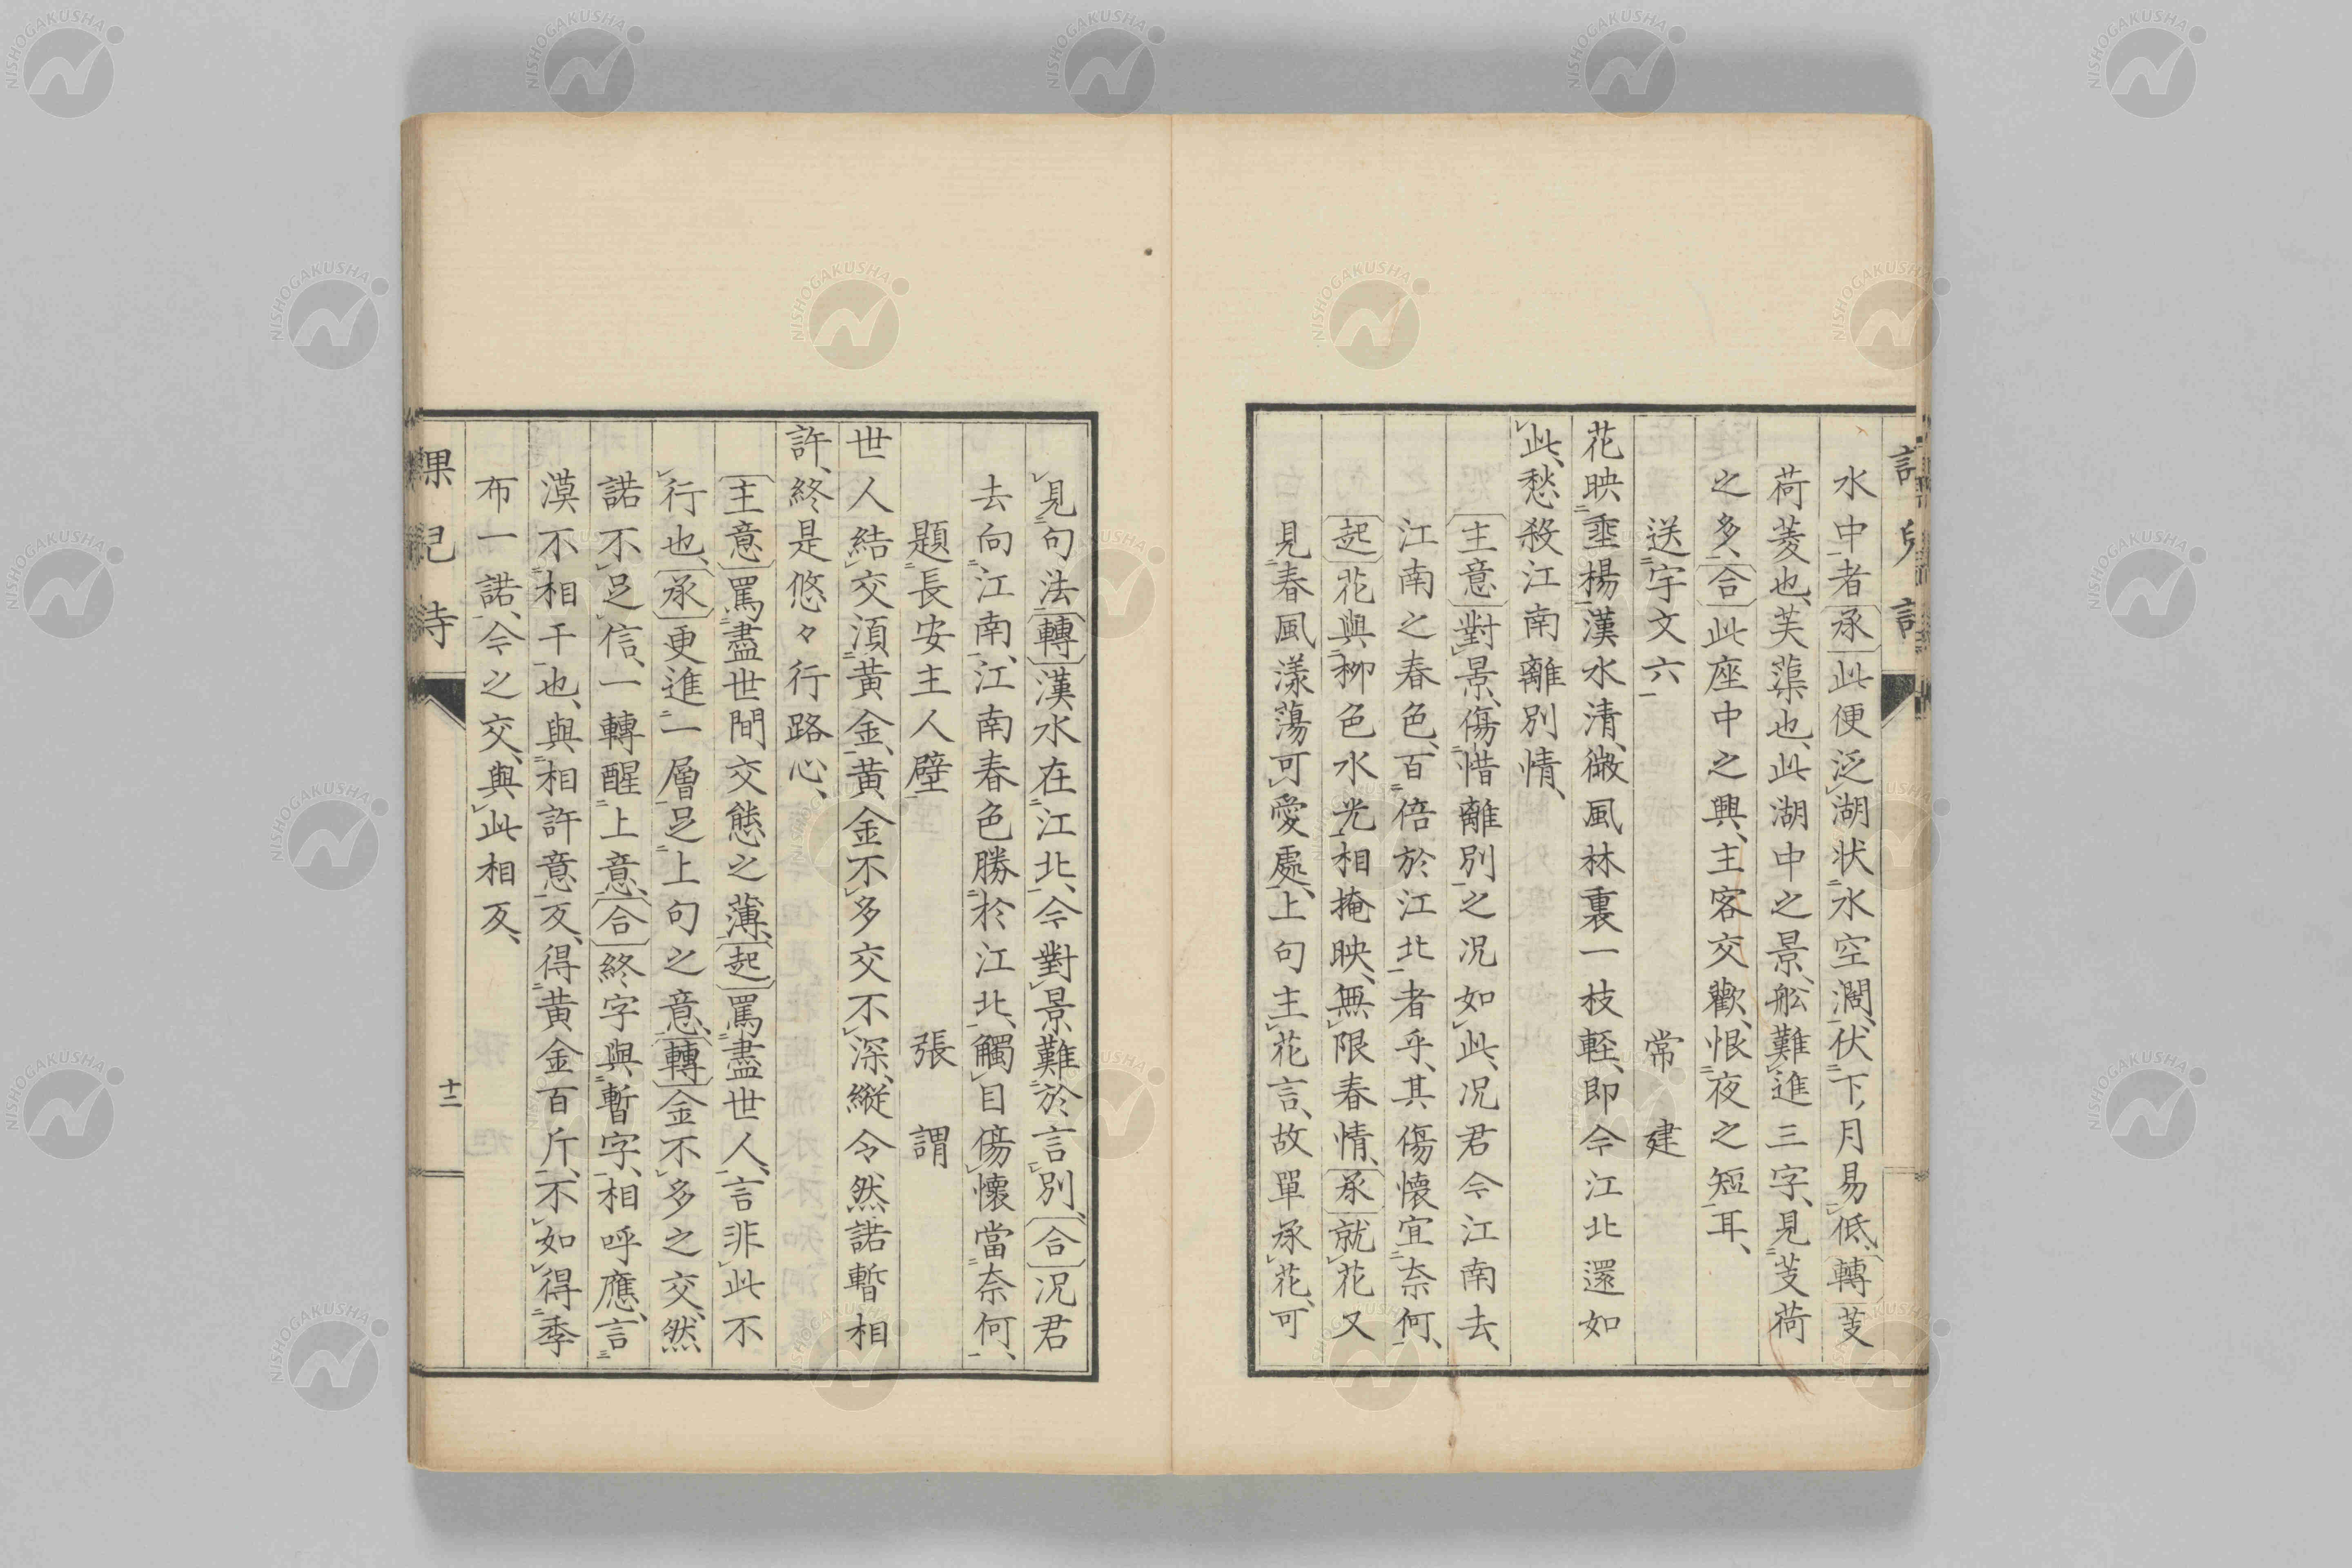 水中者〔承〕此便泛湖状水空濶、伏下月易低、〔轉〕芰
荷菱也、芙蕖也、此湖中之景、舩難進三字、見芰荷
之多、〔合〕此座中之興、主客交歡、恨夜之短耳、
送宇文六 常建
花映垂楊漢水清、微風林裏一枝軽、即今江北還如
此、愁殺江南離別情、
〔主意〕對景傷惜離別之况如此、况君今江南去、
江南之春色、百倍於江北者乎、其傷懐宜奈何、
〔起〕花與柳色水光相掩映、無限春情、〔承〕就花又
見春風漾蕩可愛處、上句主花言、故單承花、可
見句法〔轉〕漢水在江北、今對景難於言別、〔合〕况君
去向江南、江南春色勝於江北、觸目傷懐當奈何、
題長安主人壁 張謂
世人結交湏黄金、黄金不多交不深、縦令然諾暫相
許、終是悠々行路心、
〔主意〕罵盡世間交態之薄、〔起〕罵盡世人、言非此不
行也、〔承〕更進一層足上句之意、〔轉〕金不多之交、然
諾不足信、一轉醒上意、〔合〕終字與暫字、相呼應、言
漠不相干也、與相許意反、得黄金百斤、不如得季
布一諾、今之交、與此相反、
課児詩
十二
NISHOGAKUSHA